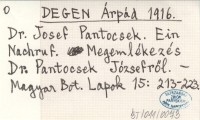 DEGEN Árpád 1916.
Dr. Josef Pantocsek. Ein
Nachruf. Megemlékezés
Dr. Pantocsek Józsefről. –
Magyar Bot. Lapok 15: 213-223.